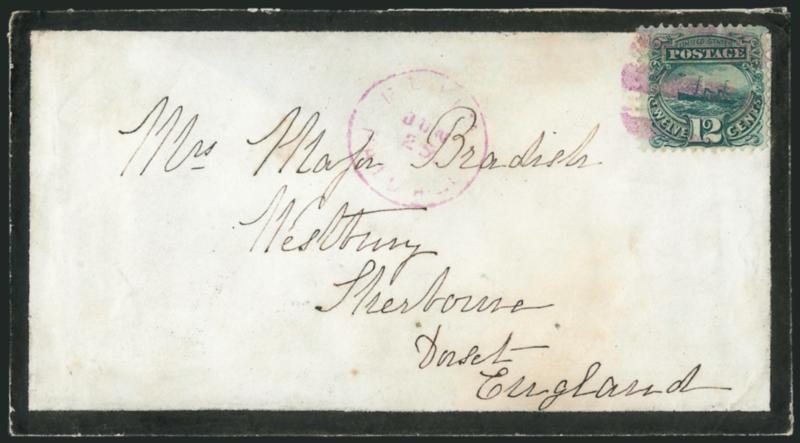 UNITED STATES
POSTAGE
TWELVE 12 CENTS
JUN
25
Mrs Major Bradish
Westbury
Sherborne
Dorset
England